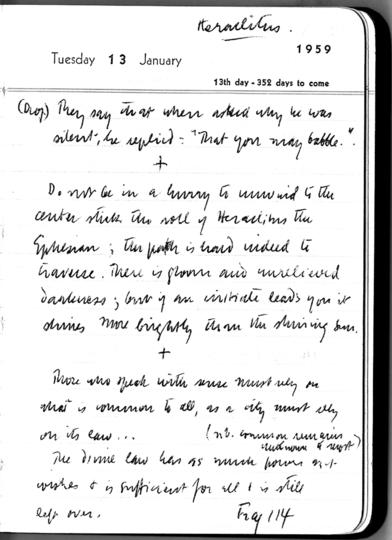 Heraclitus.
1959
Tuesday 13 January
13th day - 352 days to come
(Diog) They say that when asked why he was
silent, he replied - "That you may babble."
+
Do not be in a hurry to unwind to the
center stick the roll of Heraclitus the
Ephesian ; the path is hard indeed to
traverse. There is gloom and unrelieved
darkness ; but if an initiate leads you it
shines more brightly than the shining sun.
+
Those who speak with sense must rely on
what is common to all, as a city must rely
on its law ... (n.b. common remains
unknown to most)
The divine law has as much power as it
wishes & is sufficient for all & is still
left over. Frag 114